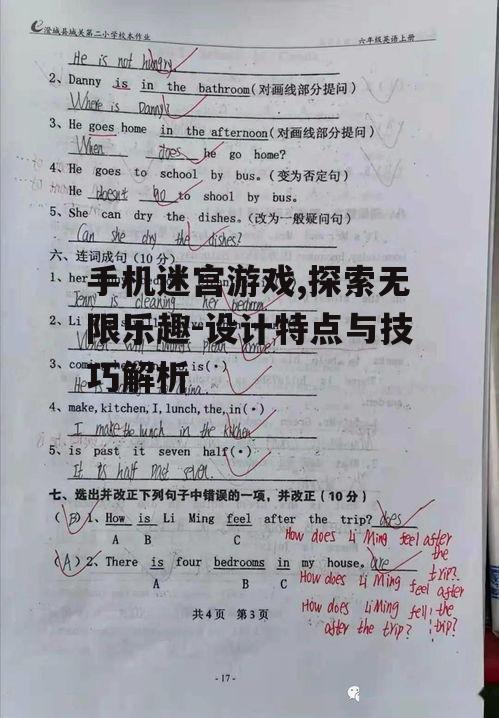 澄城县城关第二小学校本作业 六年级英语上册
He is not hungry
2、Danny is in the bathroom(对画线部分提问)
Where is Danny?
3、He goes home in the afternoon(对画线部分提问)
When does he go home?
4、He goes to school by bus.(变为否定句)
He doesn't go to shool by bus.
5、She can dry the dishes.(改为一般疑问句)
Can she dry the dishes?
六、连词成句(10分)
手机迷宫游戏,探索无
1、her
Jenny is cleaning her bedroom.
限乐趣-设计特点与技
2、Li
3、com is(·)
巧解析
4、make,kitchen,I,lunch,the,in(·)
I make the lunch in the kitchen
5、is past it seven half(·)
It is half past seven.
七、选出并改正下列句子中错误的一项,并改正(10分)
(B)1、How is Li Ming feel after the trip? does
A B C
How does Li Ming feel after the trip?
(A)2、There is four bedrooms in my house. are
A B C
How does Li Ming feel after the trip?
How does Li Ming fell
after the trip?
共4页 第3页
- 17 -